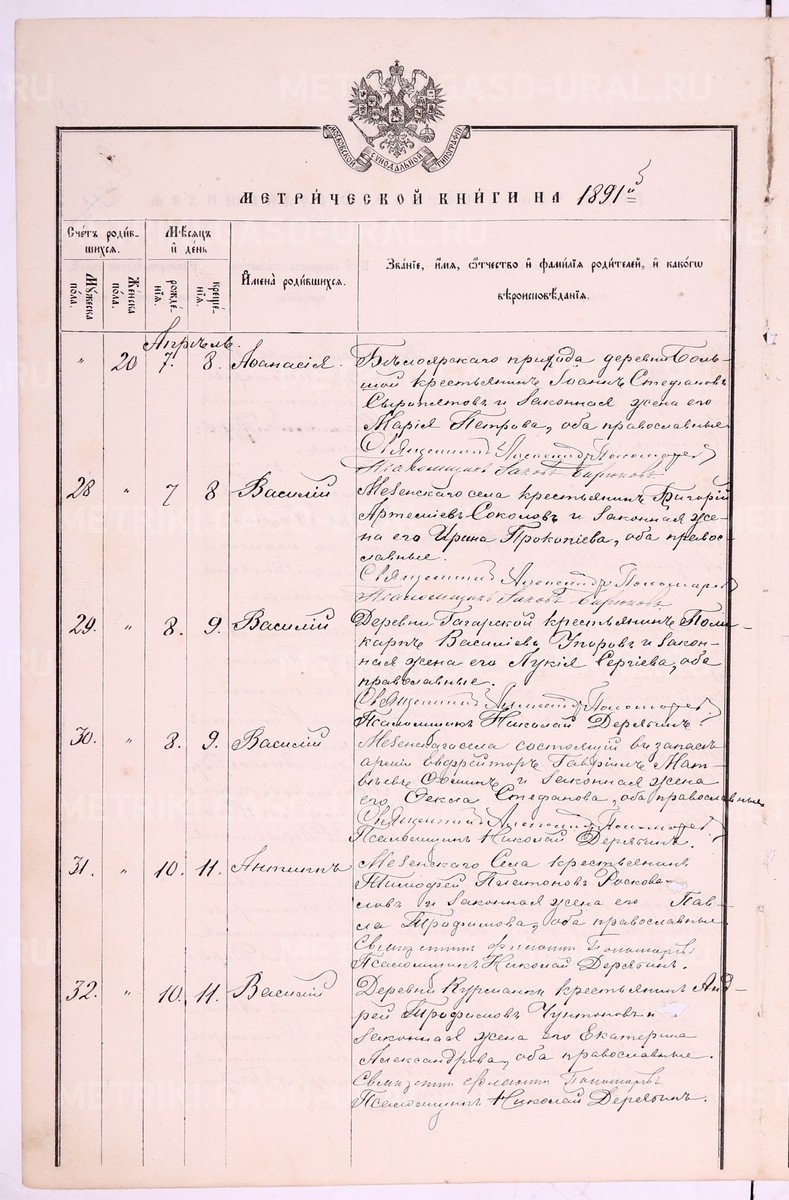 МОСКОВСКОЙ СѴНОДАЛЬНОЙ ТИПОГРАФІИ
МЕТРИ́ЧЕСКОЙ КНИ́ГИ НА 1891й
Сче́тъ роди́в-
шихся.
Мꙋ́жеска по́ла.
Же́нска по́ла.
Мѣ́сяцъ
и҆ де́нь
рожде́-
нїѧ.
креще́-
нїѧ.
И҆мена̀ роди́вшихся.
Зва́нїе, и҆́мѧ, ѻ҆́тчество и҆ фами́лїѧ роди́телей, и҆ како́гѡ
вѣроисповѣ́данїѧ.
Апрѣль.
" 20 7. 8. Аѳанасія.
Бѣлоярскаго прихода деревни Боль-
шой крестьянинъ Іоаннъ Стефановъ
Сыропятовъ и законная жена его
Марія Петрова, оба православные
Священникъ Александръ Пономаревъ
Псаломщикъ Іаковъ Бирюковъ
28 " 7 8 Василій
Мезенскаго села крестьянинъ Григорій
Артеміевъ Соколовъ и законная же-
на его Ирина Прокопіева, оба право-
славные.
Священникъ Александръ Пономаревъ
Псаломщикъ Іаковъ Бирюковъ
29. " 8. 9. Василій
Деревни Гагарской крестьянинъ Поли-
карпъ Василіевъ Упоровъ и закон-
ная жена его Лукія Сергіева, оба
православные.
Священникъ Александръ Пономаревъ.
Псаломщикъ Николай Дерябинъ
30. " 8. 9. Василій
Мезенскаго села состоящій въ запасѣ
арміи ефрейторъ Гавріилъ Мат-
ѳѣевъ Ѳоминъ и законная жена
его Ѳекла Стефанова, оба православные
Священникъ Александръ Пономаревъ
Псаломщикъ Николай Дерябинъ.
31. " 10. 11. Антиппъ
Мезенскаго Села крестьянинъ
Тимоѳей Платоновъ
и законная жена его Пав-
ла Трофимова, оба православные
Священникъ Пономаревъ
Псаломщикъ Николай Дерябинъ.
32. " 10. 11. Василій
Деревни Курманки крестьянинъ Анд-
рей Трофимовъ и
законная жена его Екатерина
Александрова, оба православные.
Священникъ Пономаревъ
Псаломщикъ Николай Дерябинъ.
METRIKI.GASO-URAL.RU